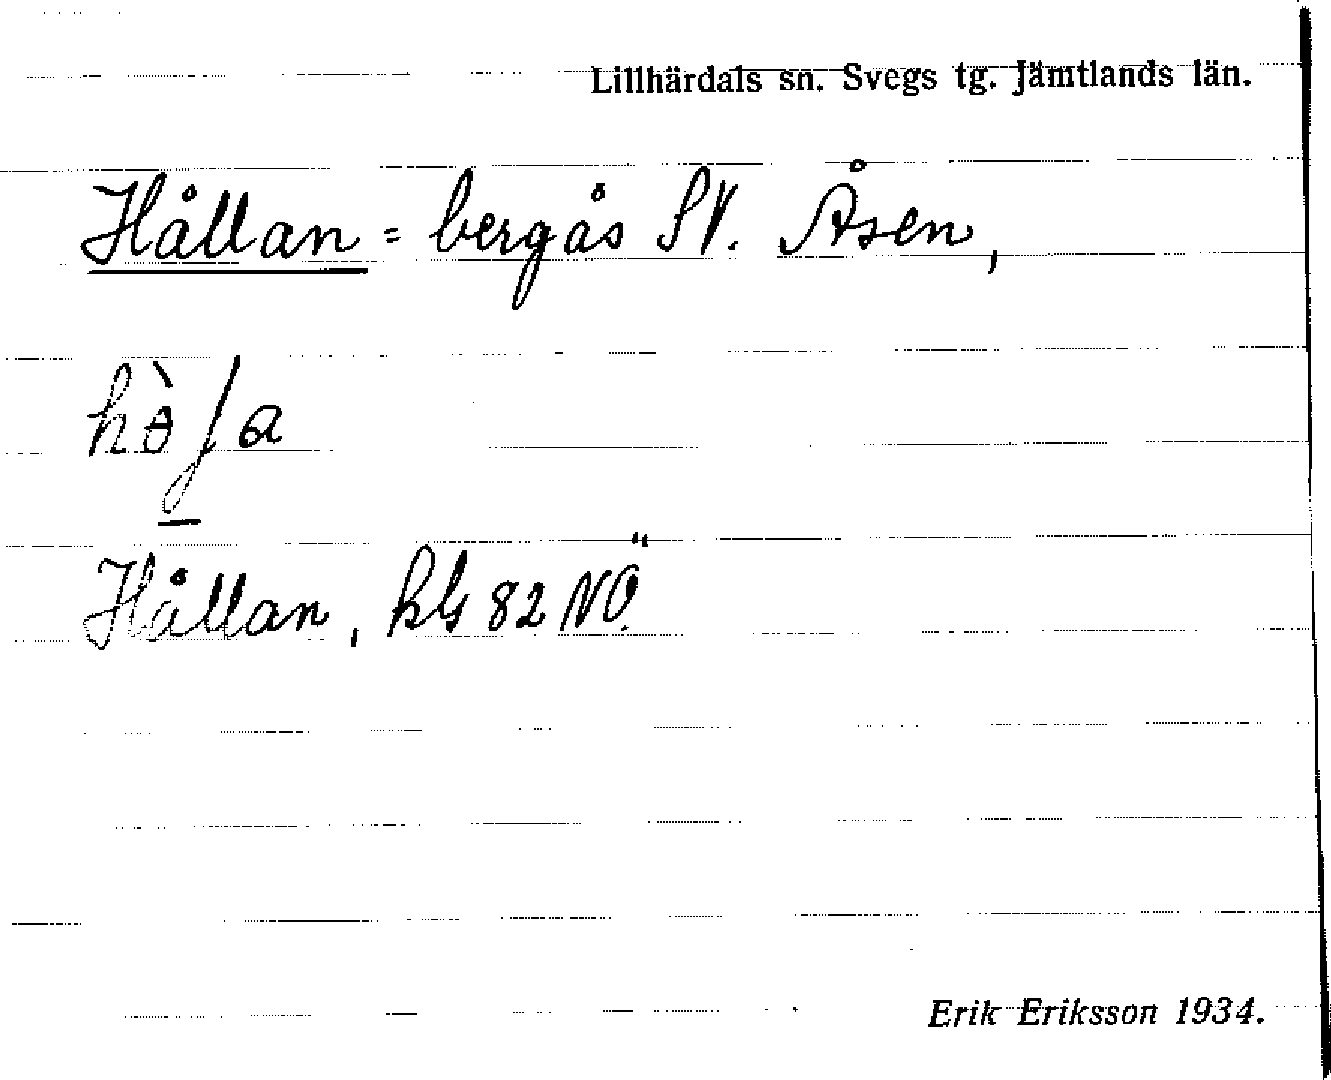 Lillhärdals sn. Svegs tg. Jämtlands län.
Hållan = bergås SV. Åsen,
Hållan, kbl 82 NÖ.
Erik Eriksson 1934.